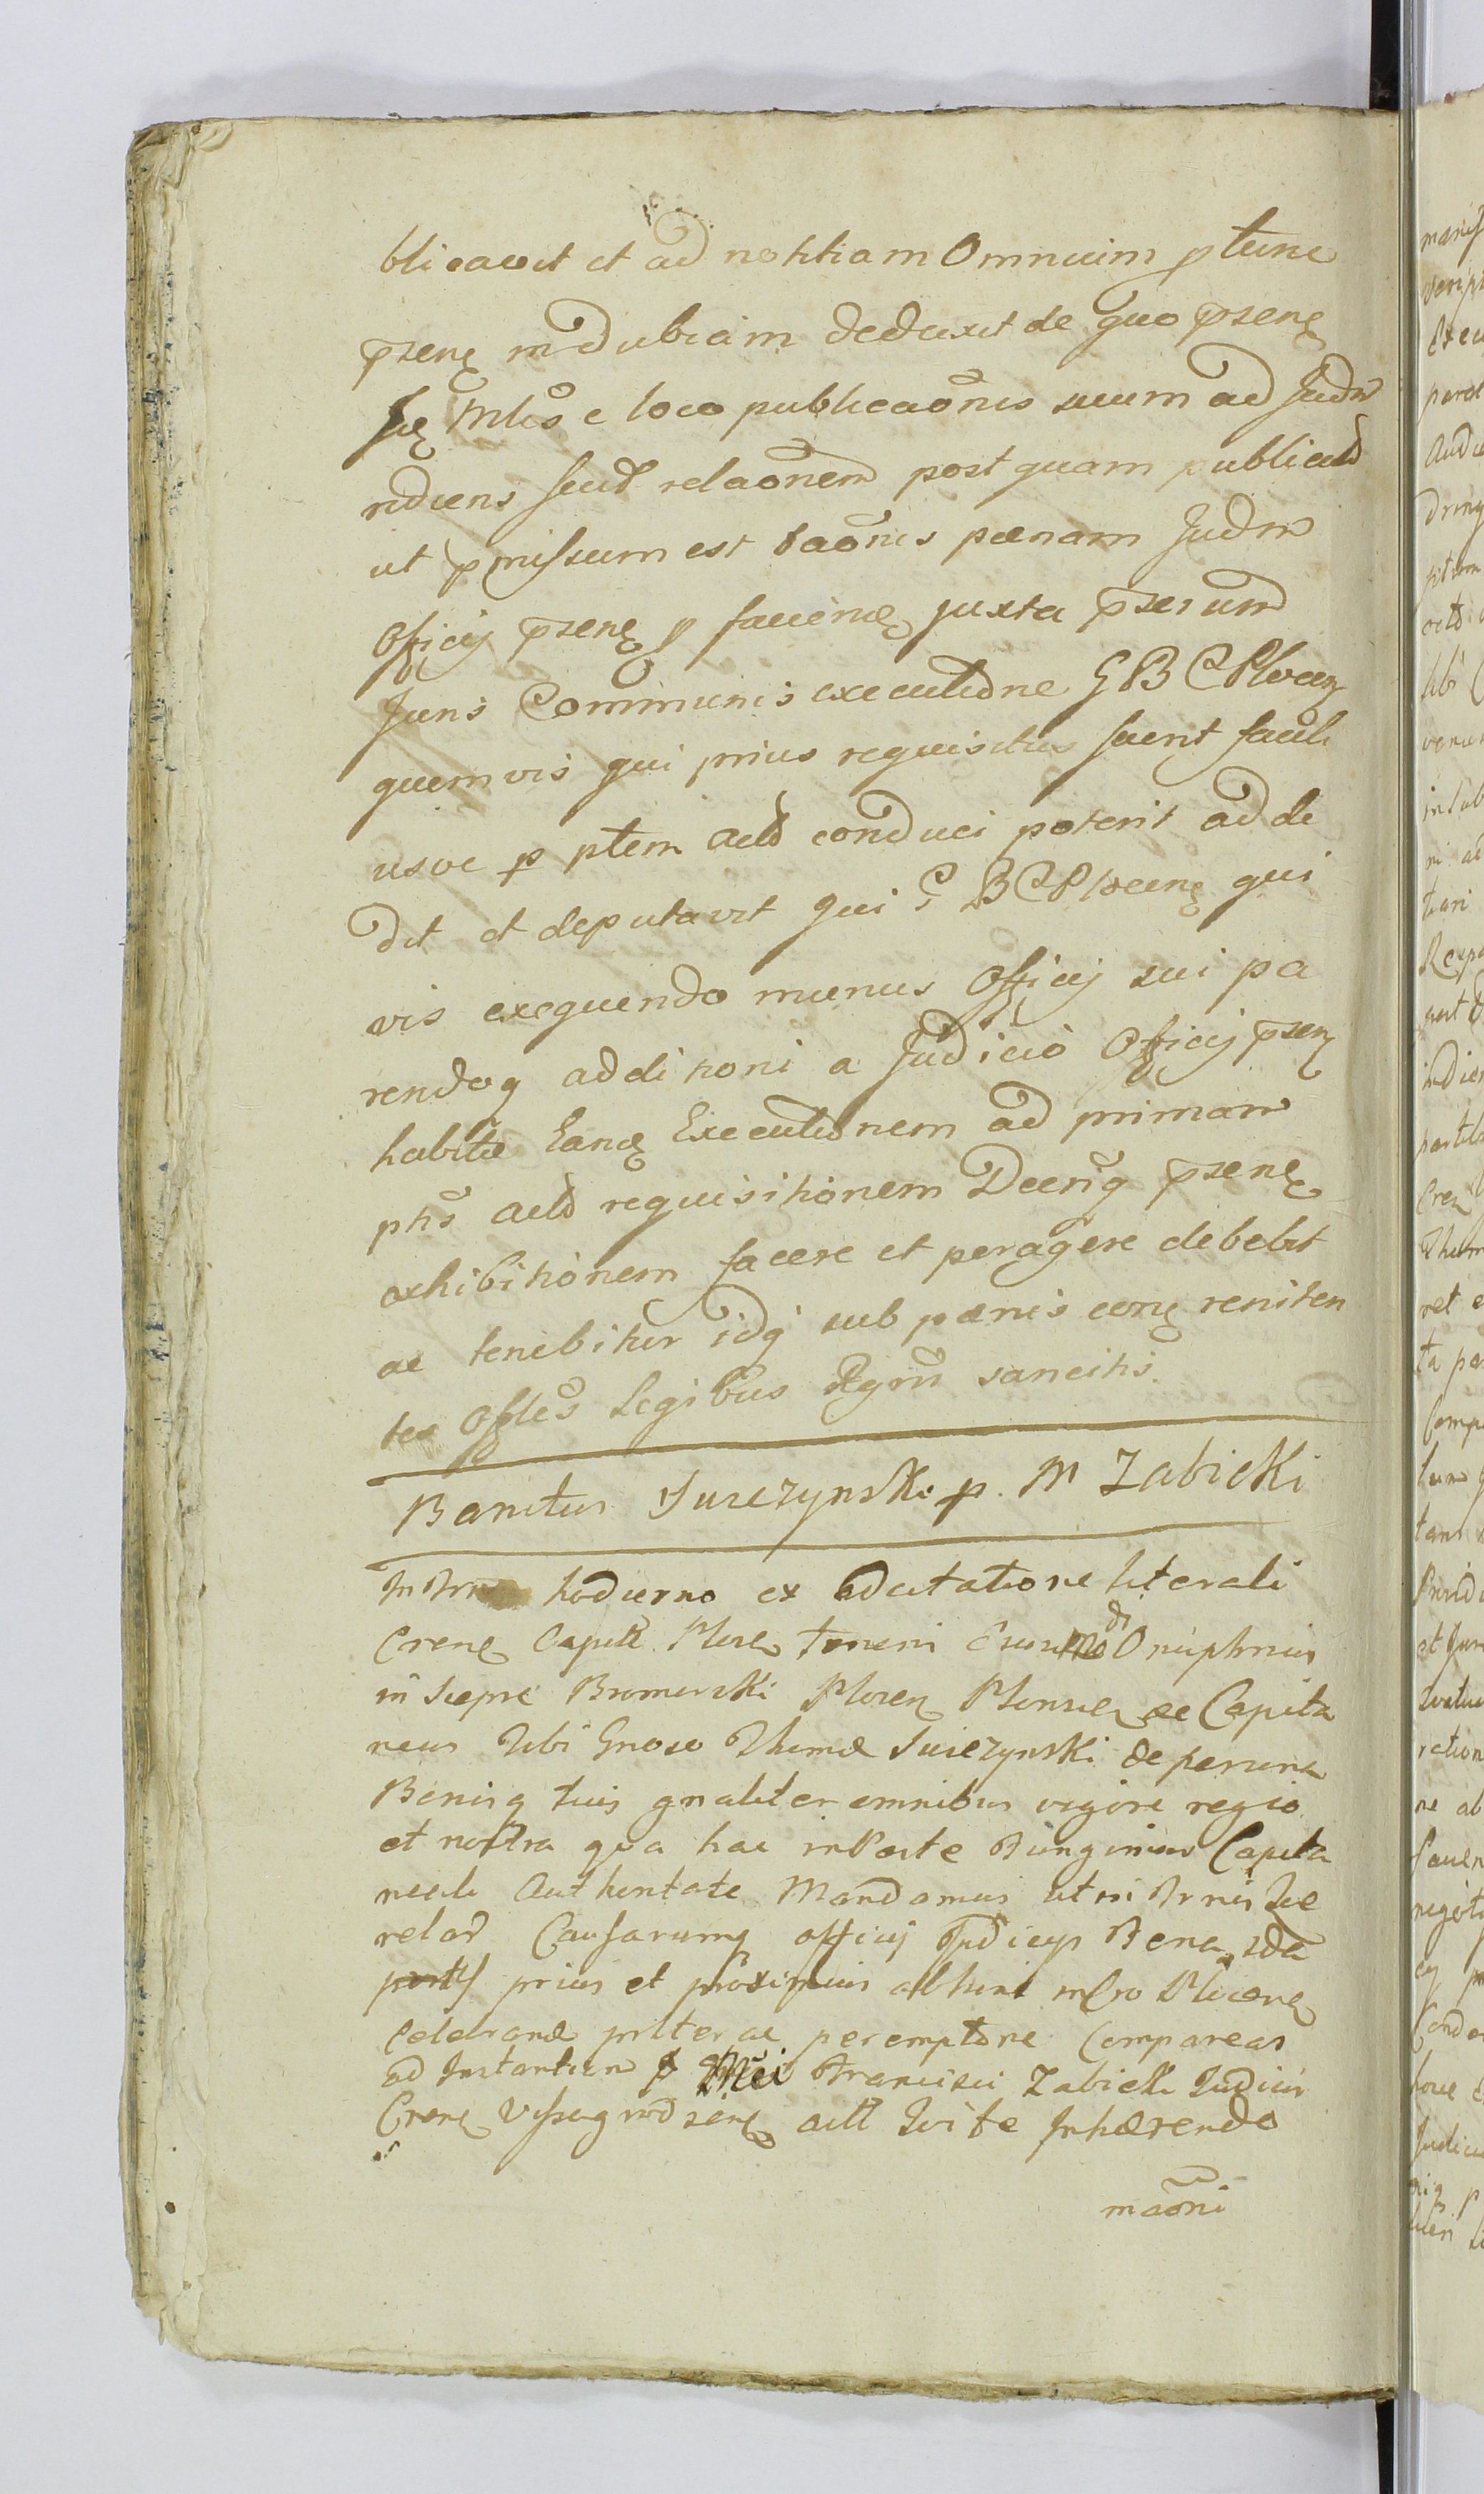 blicavit et ad notitiam Omnium ptunc
psenę indubiam deduxit de quo psenę
Ię Mltīs e loco publicaonis suum ad Judm
rediens fecit relaonem post quam publicatā
ut pmissum est baonis pænam Judm
Officij psenę p faciendę juxta pserum
Juris Communis executione GB CPlocen
quemvis qui prius requisitus fuerit facili
usve p ptem actā conduci poterit adde
dit et deputavit qui G B CPlocenę qui
vis exequendo munus Officij sui pa
rendoq additioni a Judicio Officij psenę
habitæ Eandę Executionem ad primam
ptis actā requisitionem Decriq psenę
exhibitionem facere et peragere debebit
ac tenebitur idq sub pænis conę reniten
tes Offles Legibus Regni sancitis.
Banitus Surczynski p. M Zabicki
In Trno hodierno ex adcitatione literali
Crenę Capitt Plocę tenoris eiusmodi Onuphrius
in Siepre Bromirski Plocen Plonsę &c Capita
neus Tibi Gnoso Thomæ Surczynski de persona
Bonisq tuis gnaliter omnibus vigore regio
et nostra qua hac in Parte fungimur Capita
neali Authoritate Mandamus ut in Trnis Que
relar Causarumq officij Judicijs Bena
prius et proximius abhinc in Cro Plocenę
celebrandæ pnlter ac peremptorie Compareas
ad Instantiam Mci Francisci Zabicki Judicis
Crenę Vyssegrodsienę actt Rite Inhærendo
maoni